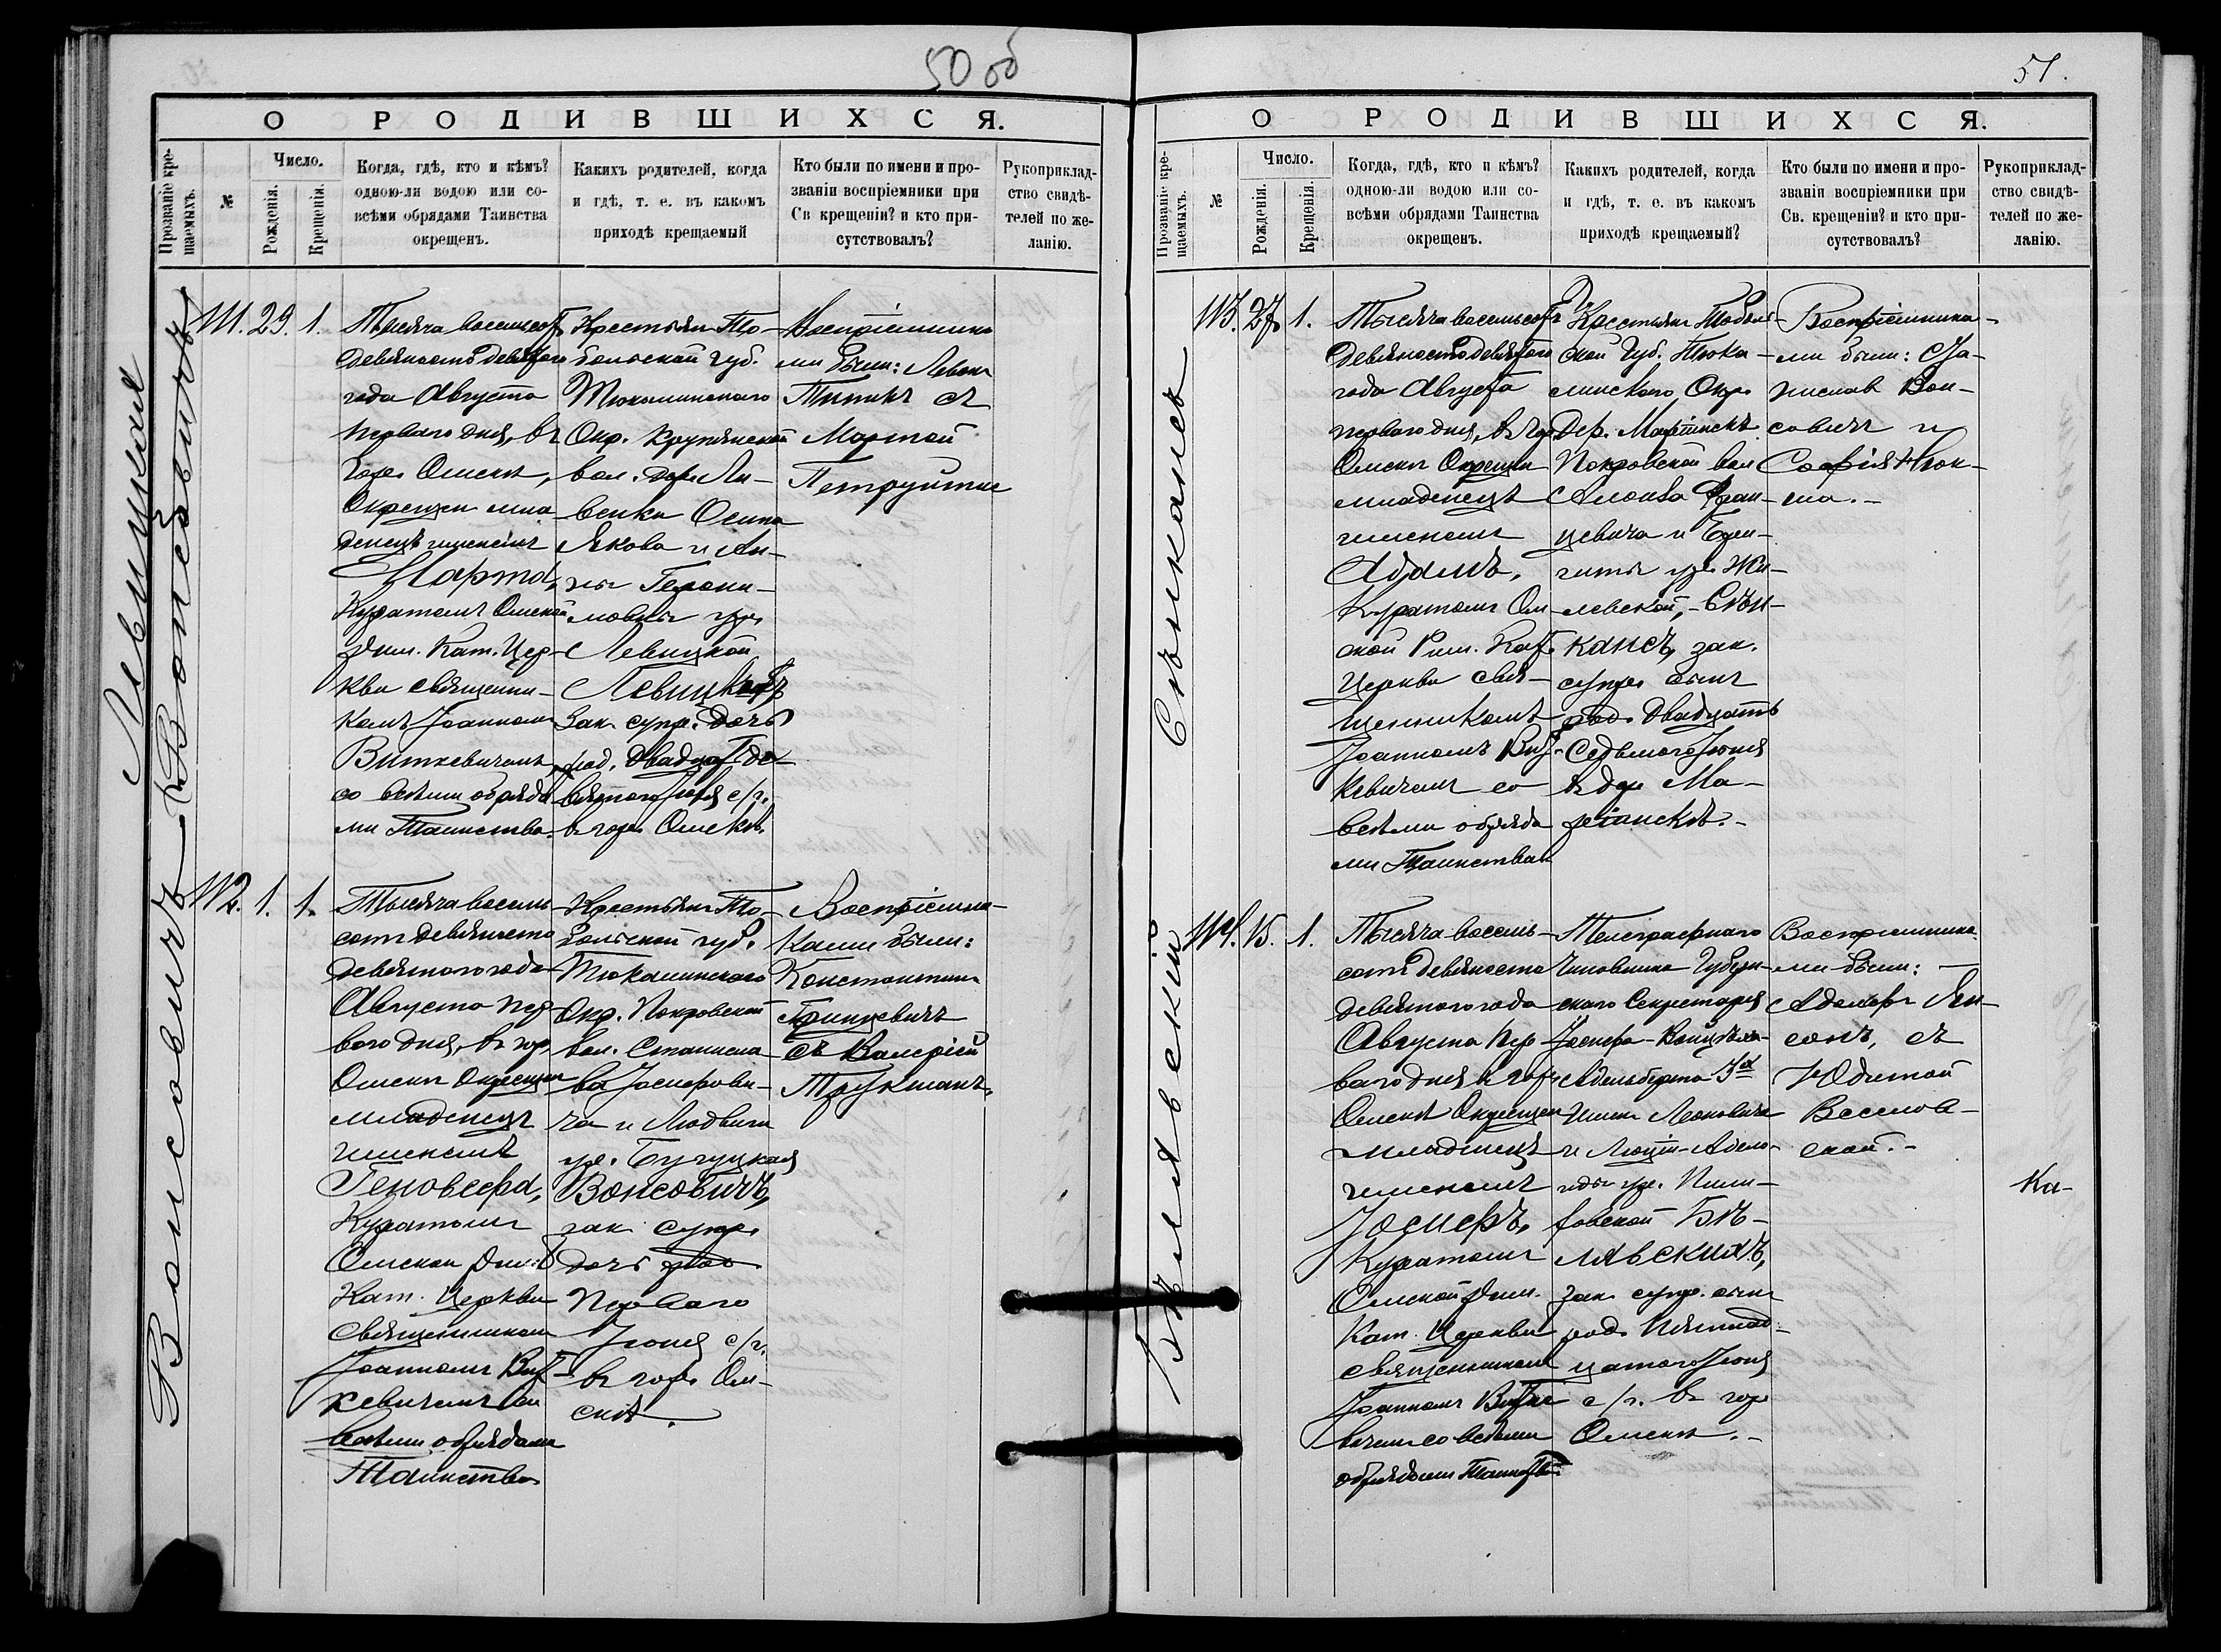 50 об
О РОДИВШИХСЯ.
Прозваніе кре-
щаемыхъ.
№
Число.
Рожденія.
Крещенія.
Когда, гдѣ, кто и кѣмъ?
одною-ли водою или со-
всѣми обрядами Таинства
окрещенъ.
Какихъ родителей, когда
и гдѣ, т. е. въ какомъ
приходѣ крещаемый
Кто были по имени и про-
званіи воспріемники при
Св крещеніи? и кто при-
сутствовалъ?
Рукоприклад-
ство свидѣ-
телей по же-
ланію.
Левицкая
111. 29. 1.
Тысяча восемьсотъ
девяностодевятого
года Августа
перваго дня, въ
гор. Омскѣ,
Окрещен мла
денецъ именемъ
Марта,
Куратомъ Омской
Рим. Кат. Цер-
кви священни-
комъ Іоанномъ
Виткевичемъ,
со всѣми обряда
ми Таинства.
Крестьян То-
больской губ.
Тюкалинскаго
Окр. Крутинской
вол. дер. Ли-
венки Осипа
Якова и Ан-
ны Герони-
мовны ур.
Левицкой
Левицкихъ,
Зак. супр. дочь
род. двадцат де-
вятого Іюля с/г.
въ гор. Омскѣ.
Воспріемника
ми были: Левон
Титикъ съ
Мартой
Петруйтис
Вонсовичъ
112. 1. 1.
Тысяча восемь-
сотъ девяносто
девятого года
Августа пер-
ваго дня, въ гор.
Омскѣ Окрещен
младенецъ
именемъ
Геновефа,
Куратомъ
Омской Рим
Кат. Церкви
Священником
Іоанномъ Вит-
кевичемъ со
всѣми обрядами
Таинства
Крестьян То-
больской губ.
Тюкалинскаго
Окр. Покровской
вол. Станисла-
ва Іосифови-
ча и Людвиги
ур. Бугуцкая
Вонсовичъ,
зак. супр.
дочь род
Перваго
Іюня с/г.
въ гор. Ом-
скѣ.
Воспріемни-
ками были:
Константин
Гринцевичъ
съ Валеріей
Трукманъ.
51.
О РОДИВШИХСЯ.
Прозваніе кре-
щаемыхъ.
№
Число.
Рожденія.
Крещенія.
Когда, гдѣ, кто и кѣмъ?
одною-ли водою или со-
всѣми обрядами Таинства
окрещенъ.
Какихъ родителей, когда
и гдѣ, т. е. въ какомъ
приходѣ крещаемый?
Кто были по имени и про-
званіи воспріемники при
Св. крещеніи? и кто при-
сутствовалъ?
Рукоприклад-
ство свидѣ-
телей по же-
ланію.
113. 27. 1.
Тысяча восемьсотъ
девяностодевятого
года Августа
перваго дня, въ гор
Омскѣ Окрещен
младенецъ
именемъ
Адамъ,
Куратомъ Ом-
ской Рим. Кат.
Церкви свя-
щенникомъ
Іоанномъ Вит-
кевичемъ со
всѣми обряда
ми Таинства
Крестьян Тоболь-
ской Губ. Тюка-
линскаго Окр.
Дер.
Покровской вол
Фран-
цевича и
ур. Жи-
левской,
зак.
супр. сынъ
род. двадцать
Седьмого Іюня
въ дер. Ма-
Воспріемника-
ми были: Ста-
нислав Вон-
сович и
Софія
Бѣлявскій
114. 15. 1.
Тысяча восемь-
сотъ девяносто
девятого года
Августа пер-
ваго дня въ гор
Омскѣ Окрещен
младенецъ
именемъ
Іосифъ,
Куратомъ
Омской Рим.
Кат. Церкви
священником
Іоанномъ Витке
вичем со всѣми
обрядами Таинства
Телеграфнаго
Чиновника Губерн-
скаго Секретаря
Іосифа-
Адальберта 3хъ
Имен Леоновича
и Люціи-Адела-
иды ур.
Бѣ-
лявскихъ,
зак. супр. сынъ
род. Пятнад-
цатого Іюня
с/г. въ гор
Омскѣ.
Воспріемника-
ми были:
Адольфъ
съ
Юдитой
Ка-